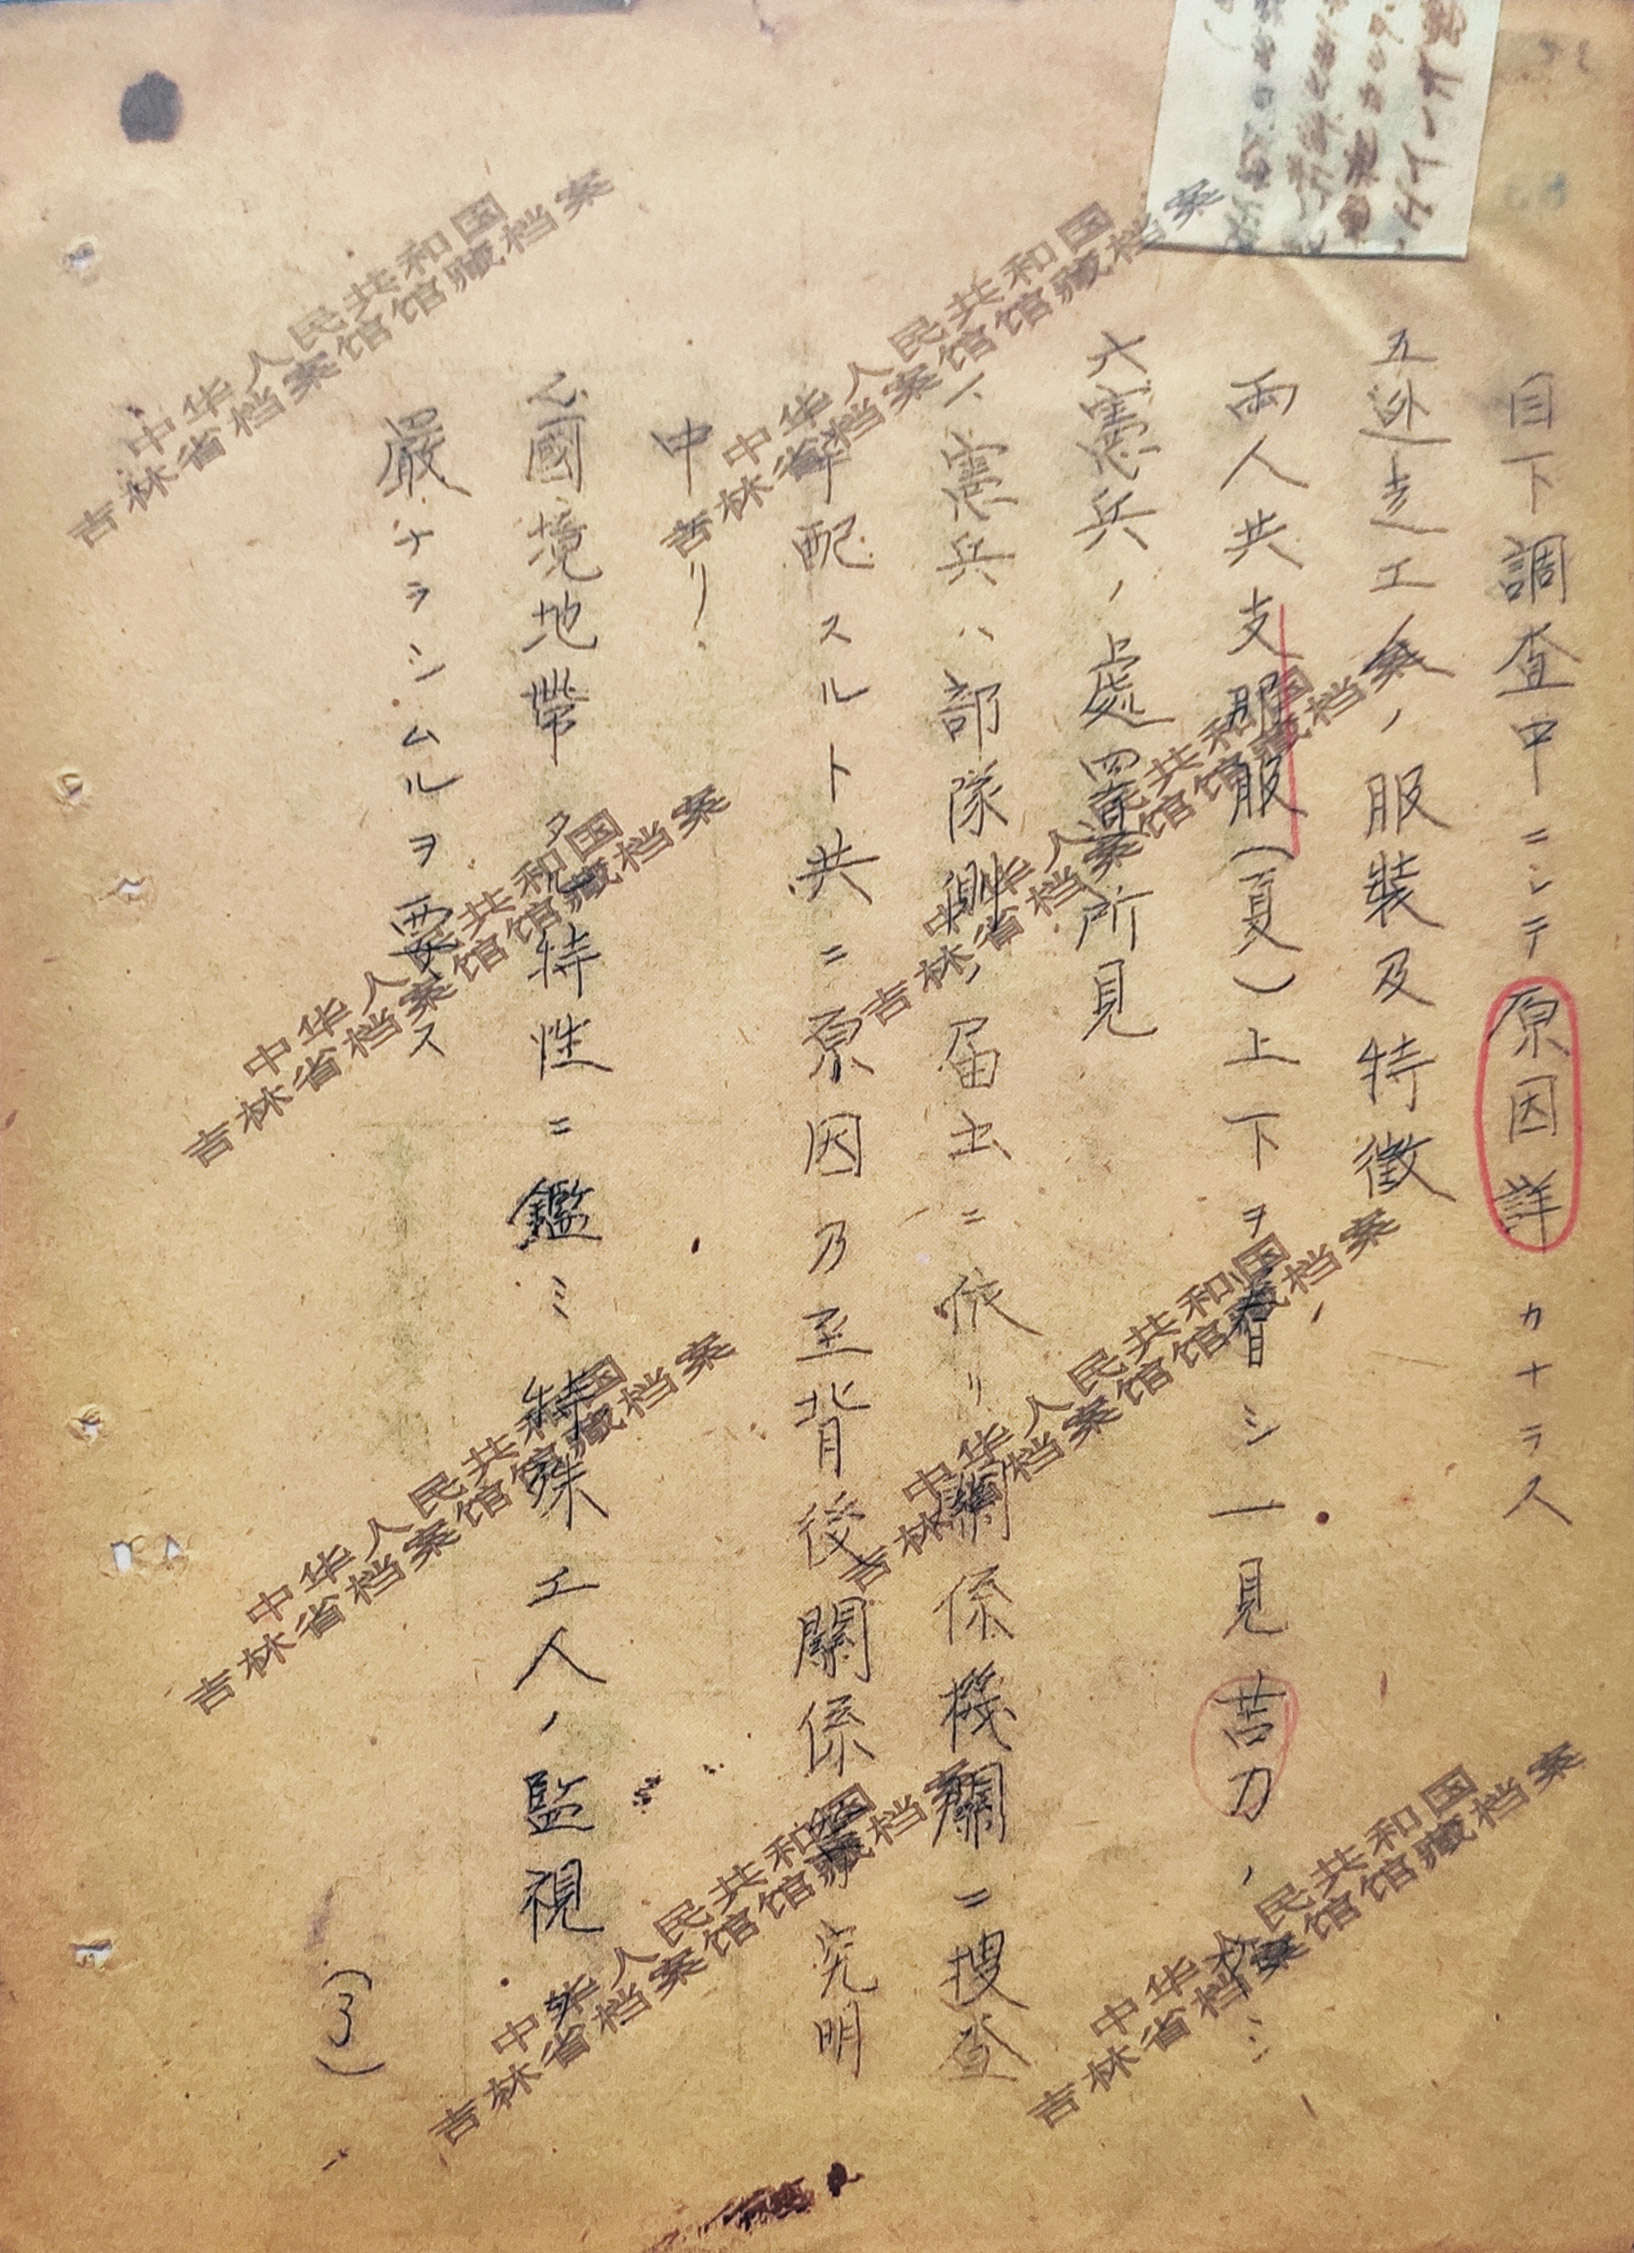 目下調査中ニシテ原因詳カナラス
五逃走工人ノ服装及特徴
両人共支那服(夏)上下ヲ着シ一見苦力ノ
六憲兵ノ處置所見
一、憲兵ハ部隊側ノ届出ニ依リ關係機關ニ捜査
手配スルト共ニ原因乃至背後關係等究明
中ナリ
乙國境地帶タル特性ニ鑑ミ特殊工人ノ監視ヲ
嚴ナラシムルヲ要ス
(了)
中华人民共和国
吉林省档案馆馆藏档案
中华人民共和国
吉林省档案馆馆藏档案
中华人民共和国
吉林省档案馆馆藏档案
中华人民共和国
吉林省档案馆馆藏档案
中华人民共和国
吉林省档案馆馆藏档案
中华人民共和国
吉林省档案馆馆藏档案
中华人民共和国
吉林省档案馆馆藏档案
中华人民共和国
吉林省档案馆馆藏档案